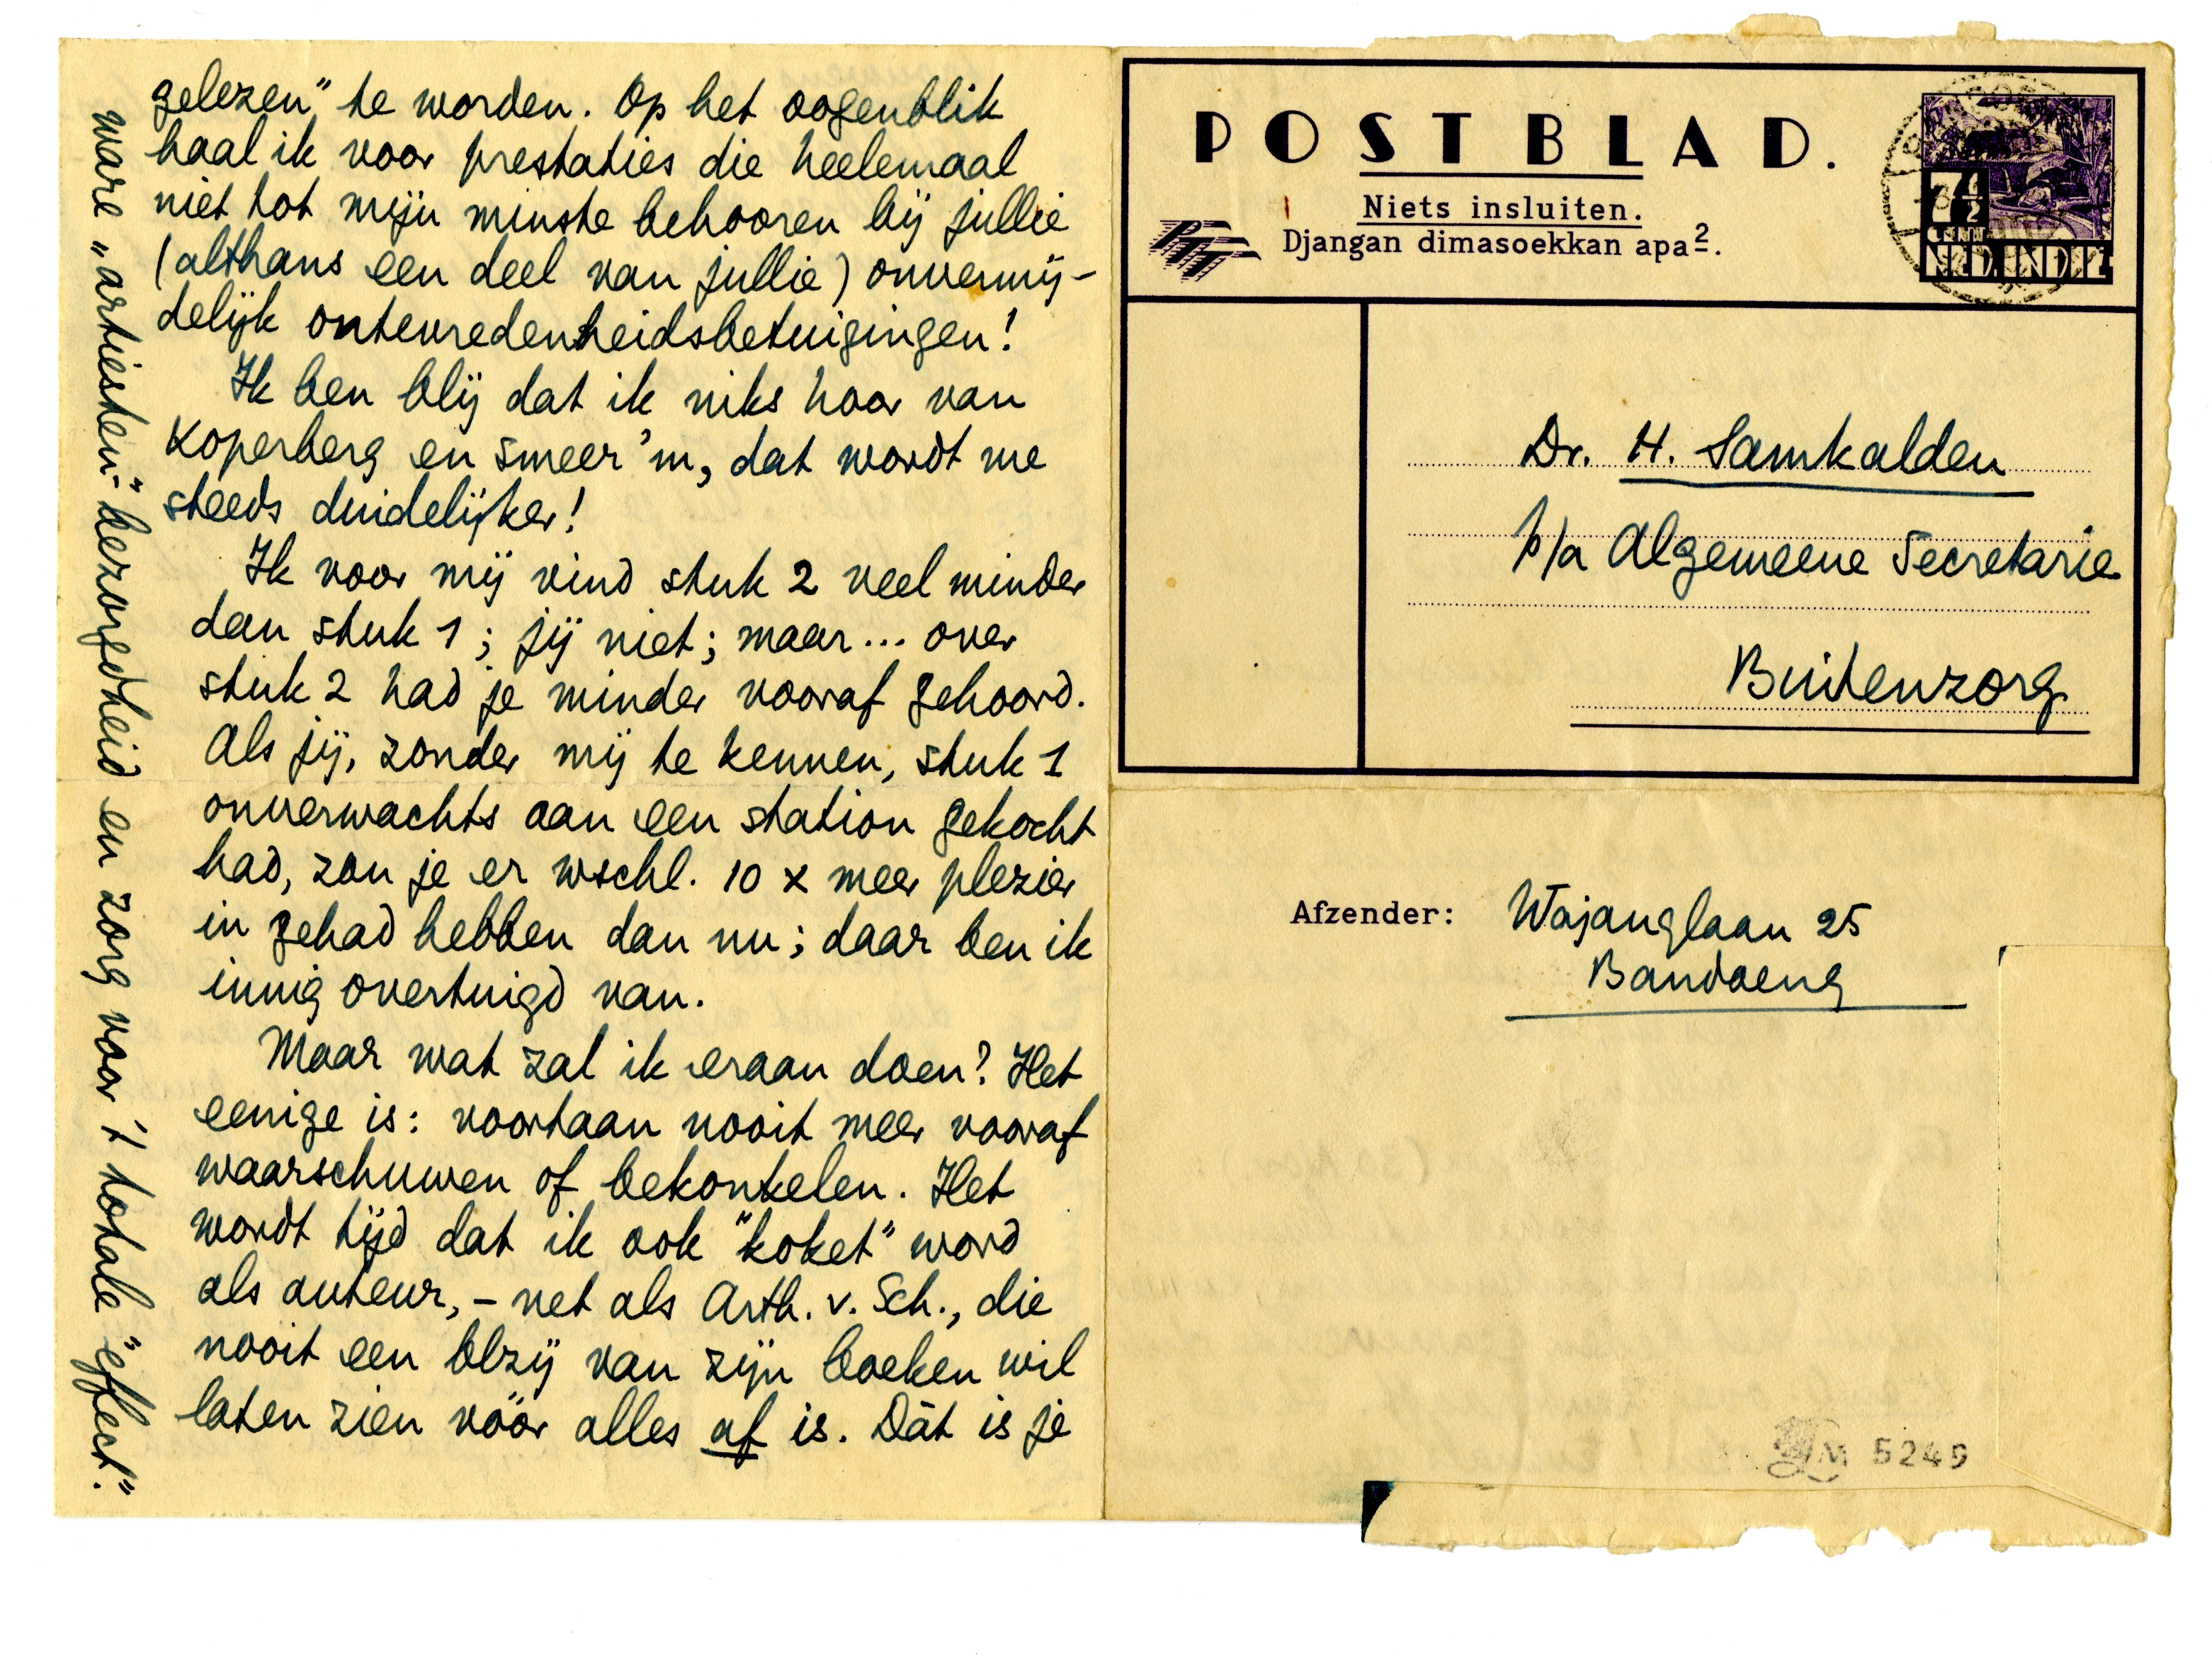 gelezen" te worden. Op het oogenblik
haal ik voor prestaties die heelemaal
niet tot mijn minste behooren bij jullie
(althans een deel van jullie) onvermij-
delijk ontevredenheidsbetuigingen!
Ik ben blij dat ik niks hoor van
Koperberg en Smeer'm, dat wordt me
steeds duidelijker!
Ik voor mij vind stuk 2 veel minder
dan stuk 1; jij niet; maar... over
stuk 2 had je minder vooraf gehoord.
Als jij, zonder mij te kennen, stuk 1
onverwachts aan een station gekocht
had, zou je er wschl. 10 x meer plezier
in gehad hebben dan nu; daar ben ik
innig overtuigd van.
Maar wat zal ik eraan doen? Het
eenige is: voortaan nooit meer vooraf
waarschuwen of bekonkelen. Het
wordt tijd dat ik ook "koket" word
als auteur, - net als Arth. v. Sch., die
nooit een blzij van zijn boeken wil
laten zien vóór alles af is. Dàt is je
ware „artiesten"-bezorgdheid en zorg voor 't totale "effect".
POSTBLAD.
Niets insluiten.
Djangan dimasoekkan apa2.
PTT
7½
CENT
NED.INDIE
Dr. H. Samkalden
p/a Algemeene Secretarie
Buitenzorg
Afzender: Wajanglaan 25
Bandoeng
LM 5249